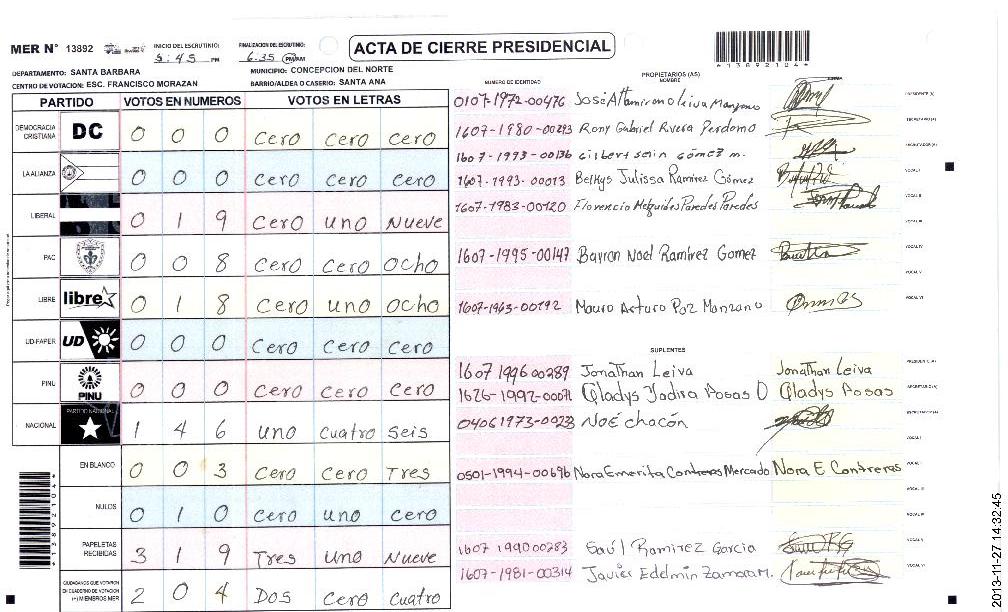 MER N° 13892
INICIO DEL ESCRUTINIO: 5:45 PM
FINALIZACION DEL ESCRUTINIO: 6:35 PM/AM
ACTA DE CIERRE PRESIDENCIAL
*1389210*
DEPARTAMENTO: SANTA BARBARA
MUNICIPIO: CONCEPCION DEL NORTE
CENTRO DE VOTACION: ESC. FRANCISCO MORAZAN
BARRIO/ALDEA O CASERIO: SANTA ANA
PARTIDO VOTOS EN NUMEROS VOTOS EN LETRAS
DEMOCRACIA CRISTIANA DC 0 0 0 cero cero cero
LA ALIANZA 0 0 0 cero cero cero
LIBERAL 0 1 9 cero uno Nueve
PAC 0 0 8 cero cero ocho
LIBRE libre 0 1 8 cero uno ocho
UD-FAPER UD 0 0 0 cero cero cero
PINU PINU 0 0 0 cero cero cero
NACIONAL PARTIDO NACIONAL 1 4 6 uno cuatro seis
EN BLANCO 0 0 3 cero cero Tres
NULOS 0 1 0 cero uno cero
PAPELETAS RECIBIDAS 3 1 9 Tres uno Nueve
CIUDADANOS QUE VOTARON EN CUADERNO DE VOTACION (+) MIEMBROS MER 2 0 4 Dos cero cuatro
NUMERO DE IDENTIDAD
PROPIETARIOS (AS)
NOMBRE
FIRMA
0107-1972-00476 José Altamirano Leiva PRESIDENTE (A)
1607-1980-00293 Rony Gabriel Rivera Perdomo SECRETARIO (A)
1607-1993-00136 Gilbert gómez m. ESCRUTADOR (A)
1607-1993-00013 Belkys Julissa Ramirez Gómez VOCAL I
1607-1983-00120 Florencio Paredes Paredes VOCAL II
VOCAL III
1607-1995-00147 Bayron Noel Ramirez Gomez VOCAL IV
VOCAL V
1607-1963-00192 Mauro Arturo Paz Manzano VOCAL VI
SUPLENTES
1607 1996 00289 Jonathan Leiva Jonathan Leiva PRESIDENTE (A)
1626-1992-00071 Gladys Yadira Posas O Gladys Posas SECRETARIO (A)
0406 1973-00233 NOÉ chacón ESCRUTADOR (A)
VOCAL I
0501-1994-00696 Nora Emerita Contreras Mercado Nora E Contreras VOCAL II
VOCAL III
VOCAL IV
1607 1990 00283 Saúl Ramirez Garcia VOCAL V
1607-1981-00314 Javier Edelmin Zamora M. VOCAL VI
2013-11-27 14:32:45